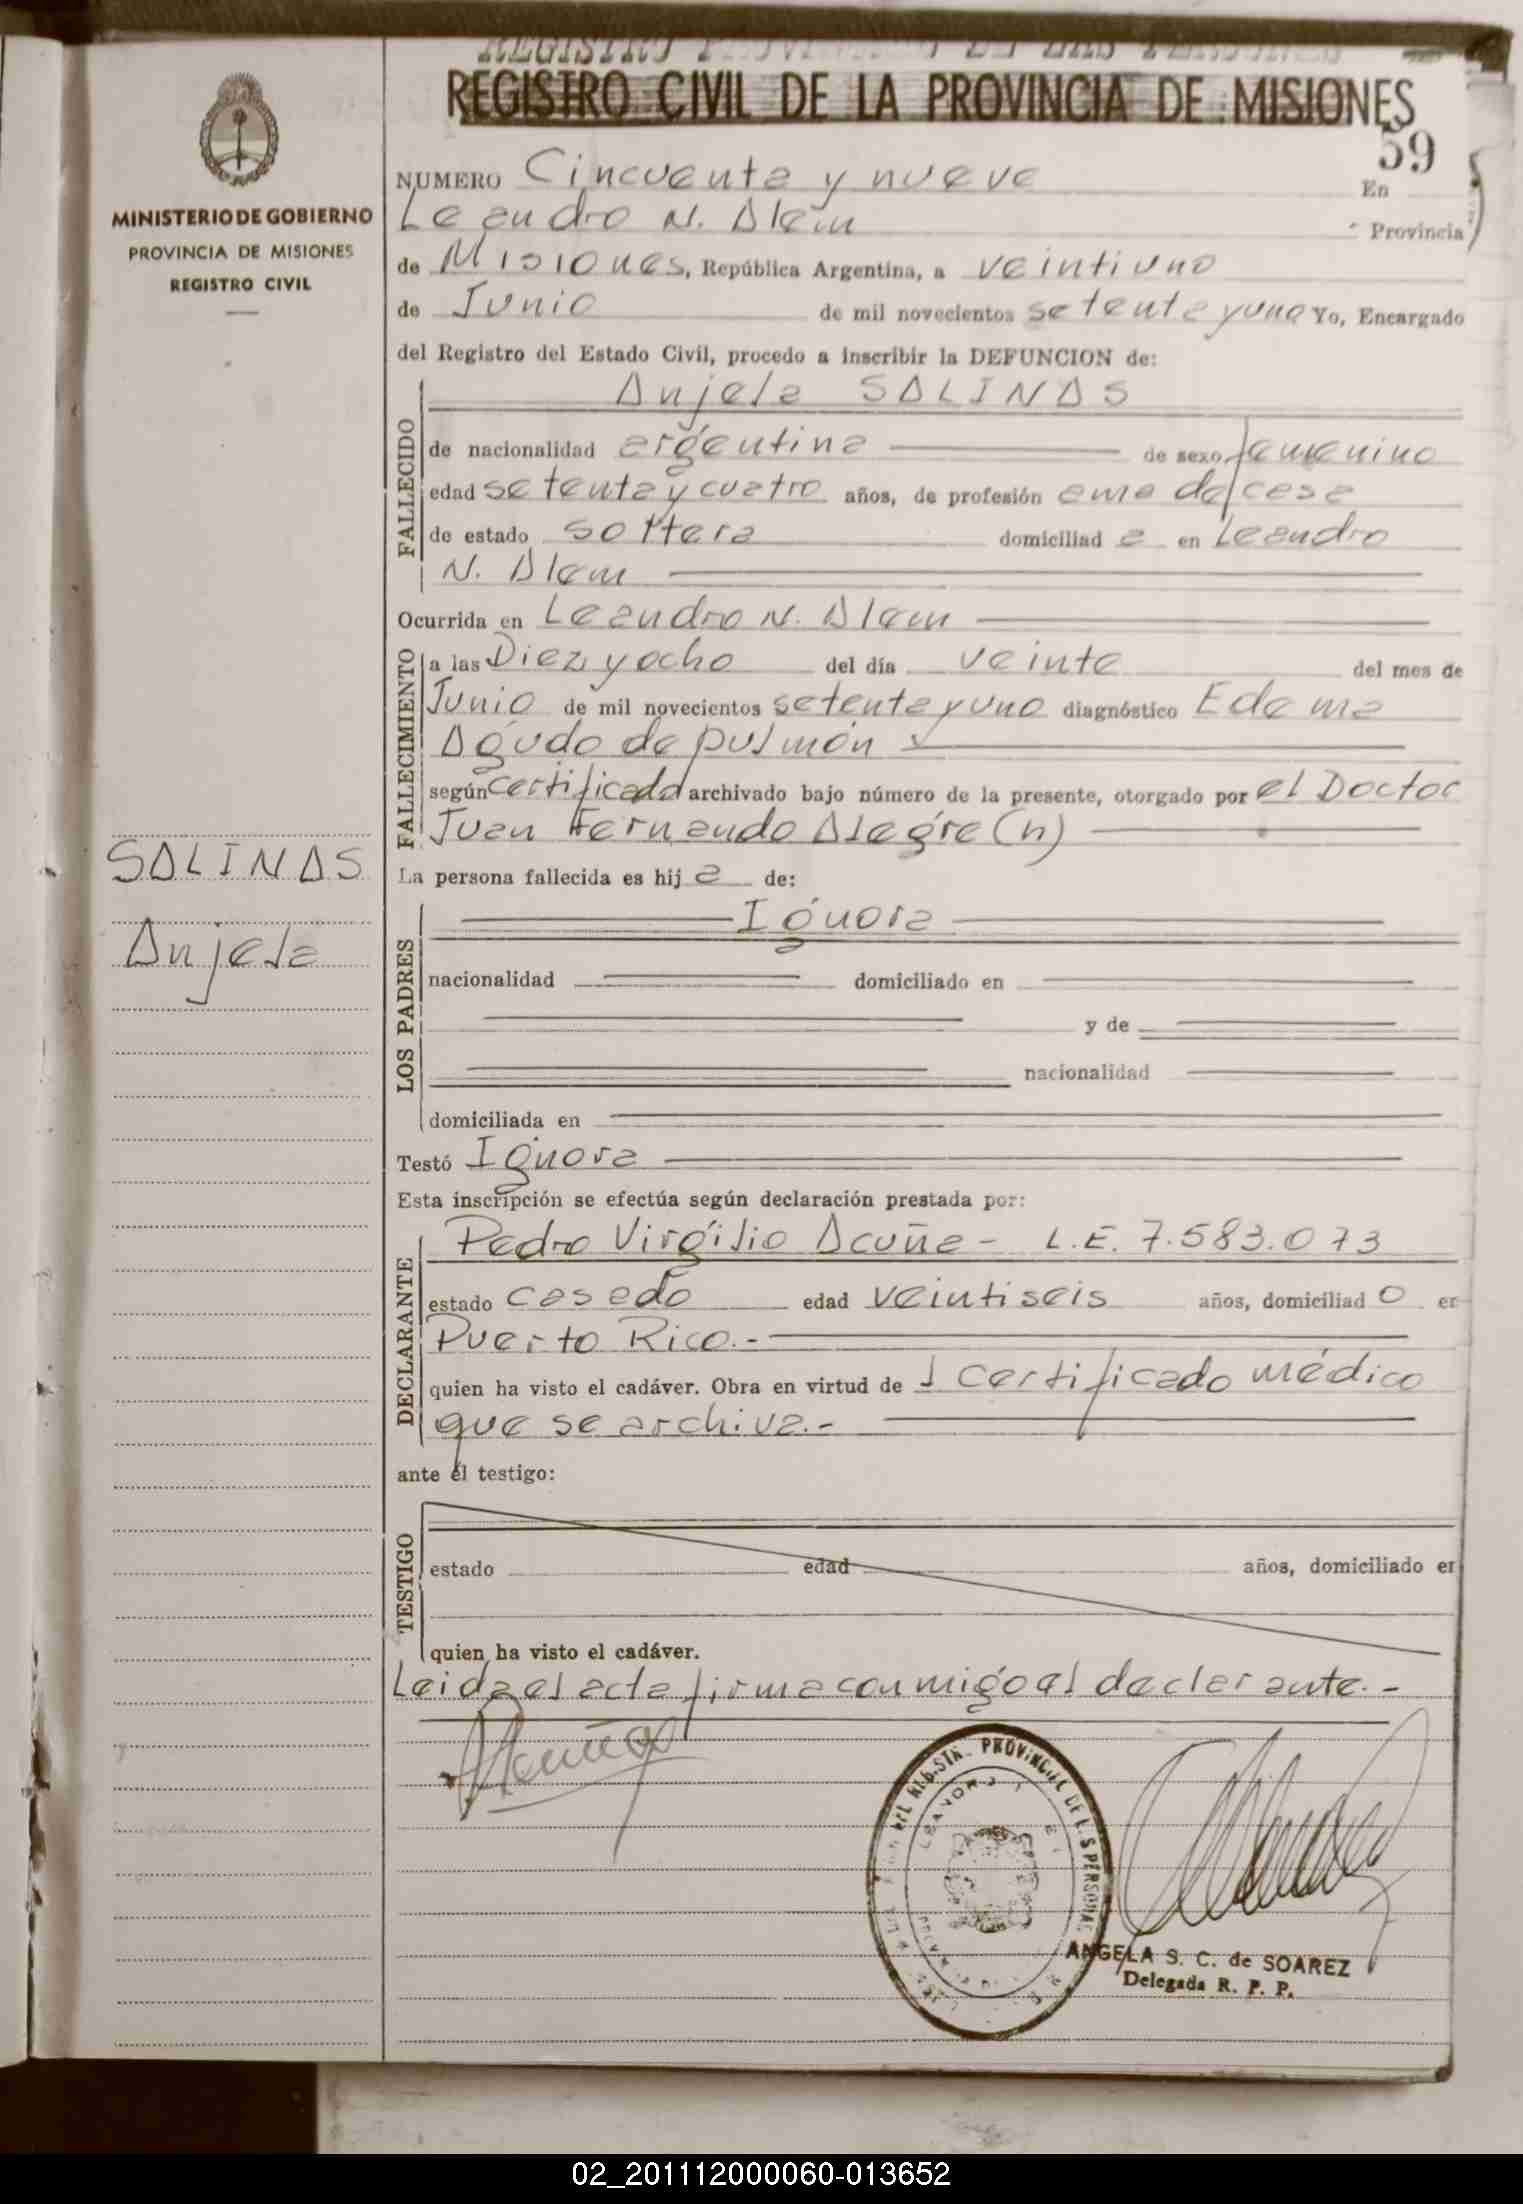 REGISTRO CIVIL DE LA PROVINCIA DE MISIONES
59
MINISTERIO DE GOBIERNO
PROVINCIA DE MISIONES
REGISTRO CIVIL
NUMERO Cincuenta y nueve En
Leandro N. Alem Provincia
de Misiones, República Argentina, a veintiuno
de Junio de mil novecientos setenta y uno Yo, Encargado
del Registro del Estado Civil, procedo a inscribir la DEFUNCION de:
FALLECIDO
Anjela SALINAS
de nacionalidad argentina de sexo femenino
edad setenta y cuatro años, de profesión ama de casa
de estado soltera domiciliad a en Leandro
N. Alem
Ocurrida en Leandro N. Alem
FALLECIMIENTO
a las Diez y ocho del día veinte del mes de
Junio de mil novecientos setenta y uno diagnóstico Edema
Agudo de pulmón
según certificado archivado bajo número de la presente, otorgado por el Doctor
Juan Fernando Alegre (h)
SALINAS
Anjela
La persona fallecida es hij a de:
LOS PADRES
Ignora
nacionalidad domiciliado en
y de
nacionalidad
domiciliada en
Testó Ignora
Esta inscripción se efectúa según declaración prestada por:
DECLARANTE
Pedro Virgilio Acuña - L.E. 7.583.073
estado casado edad veintiseis años, domiciliad o en
Puerto Rico.-
quien ha visto el cadáver. Obra en virtud de 1 certificado médico
que se archiva.-
ante el testigo:
TESTIGO
estado edad años, domiciliado en
quien ha visto el cadáver.
Leida el acta firma conmigo el declarante.-
ANGELA S. C. de SOAREZ
Delegada R. P. P.
02_201112000060-013652